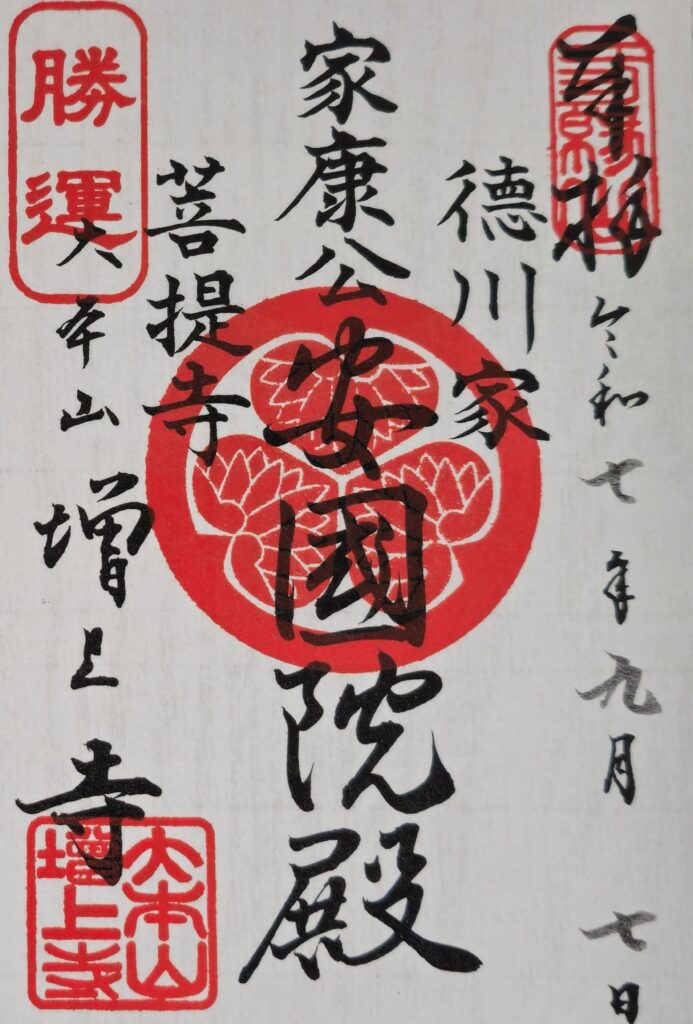 奉拝
令和七年九月七日
德川家
家康公安國院殿
菩提寺
勝運
大本山増上寺
大本山
増上寺